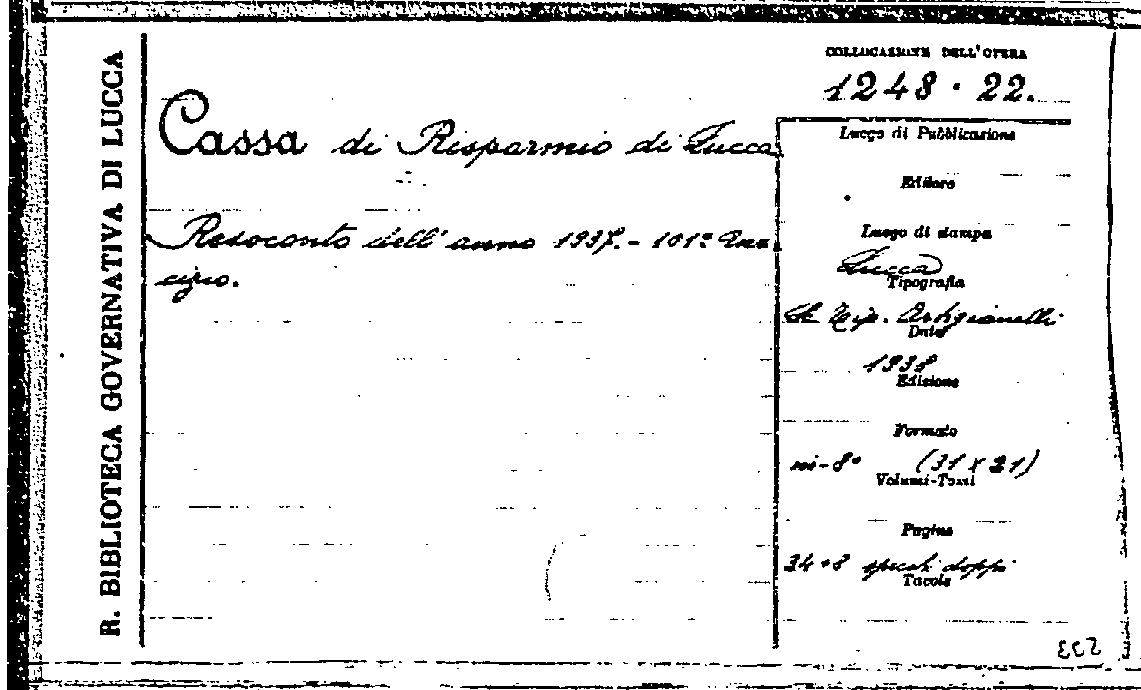 R. BIBLIOTECA GOVERNATIVA DI LUCCA
COLLOCAZIONE DELL'OPERA
1248 · 22.
Cassa di Risparmio di Lucca
Resoconto dell'anno 1937. - 101º Eser
cizio.
Luogo di Pubblicazione
Editore
Luogo di stampa
Lucca
Tipografia
Tip. Artigianelli
Data
1938
Edizione
Formato
in-8º (31 x 21)
Volumi-Tomi
Pagine
34+8 specch. doppi
Tavole